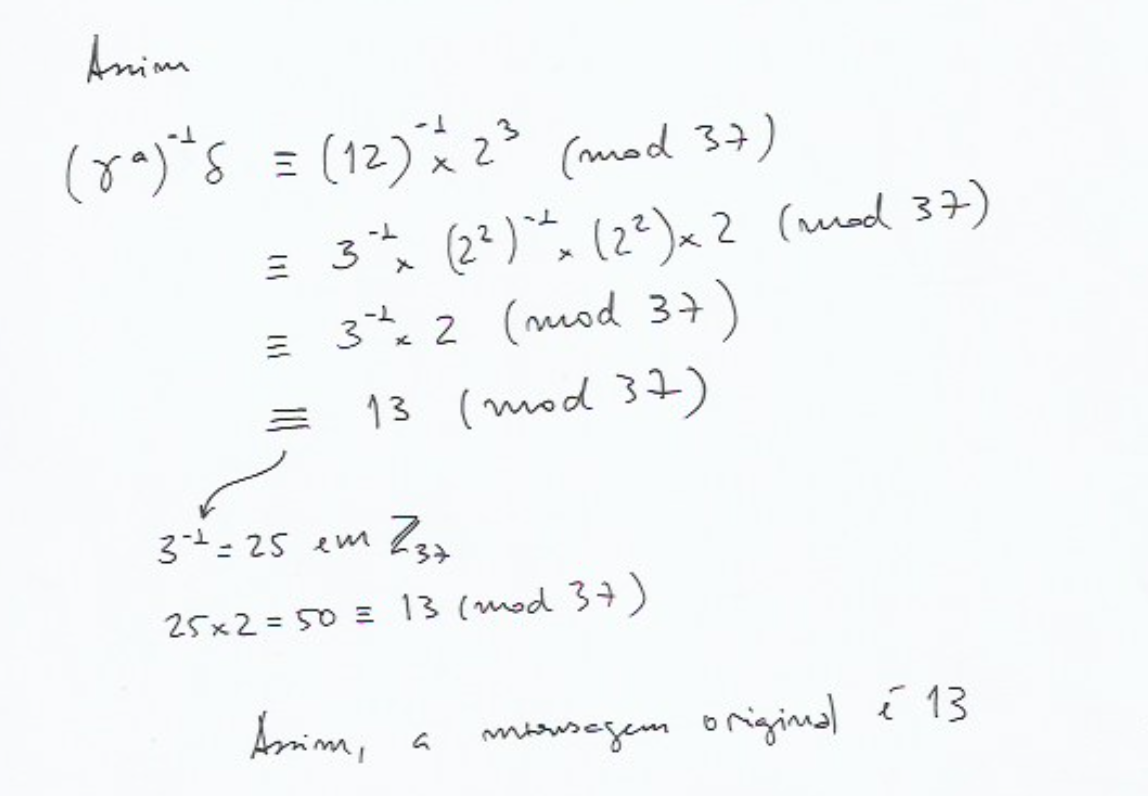 Assim
(γᵃ)⁻¹δ ≡ (12)⁻¹ × 2³ (mod 37)
≡ 3⁻¹ × (2²)⁻¹ × (2²) × 2 (mod 37)
≡ 3⁻¹ × 2 (mod 37)
≡ 13 (mod 37)
3⁻¹ = 25 em ℤ₃₇
25 × 2 = 50 ≡ 13 (mod 37)
Assim, a mensagem original é 13